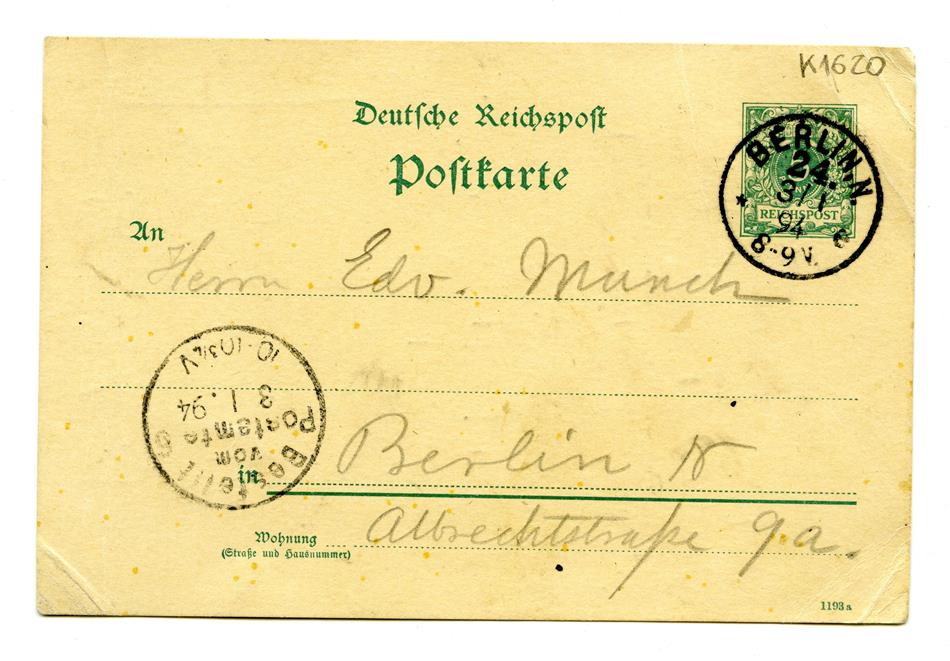 K1620
Deutsche Reichspost
Postkarte
BERLIN, N.
24.
3/1
94
8-9V.
REICHSPOST
An
Herrn Edv. Munch
10-10¾V
3 1. 94
Postamte 6
vom
Bestellt
Berlin N
in
Albrechtstraße 9a.
Wohnung
(Straße und Hausnummer)
1193a